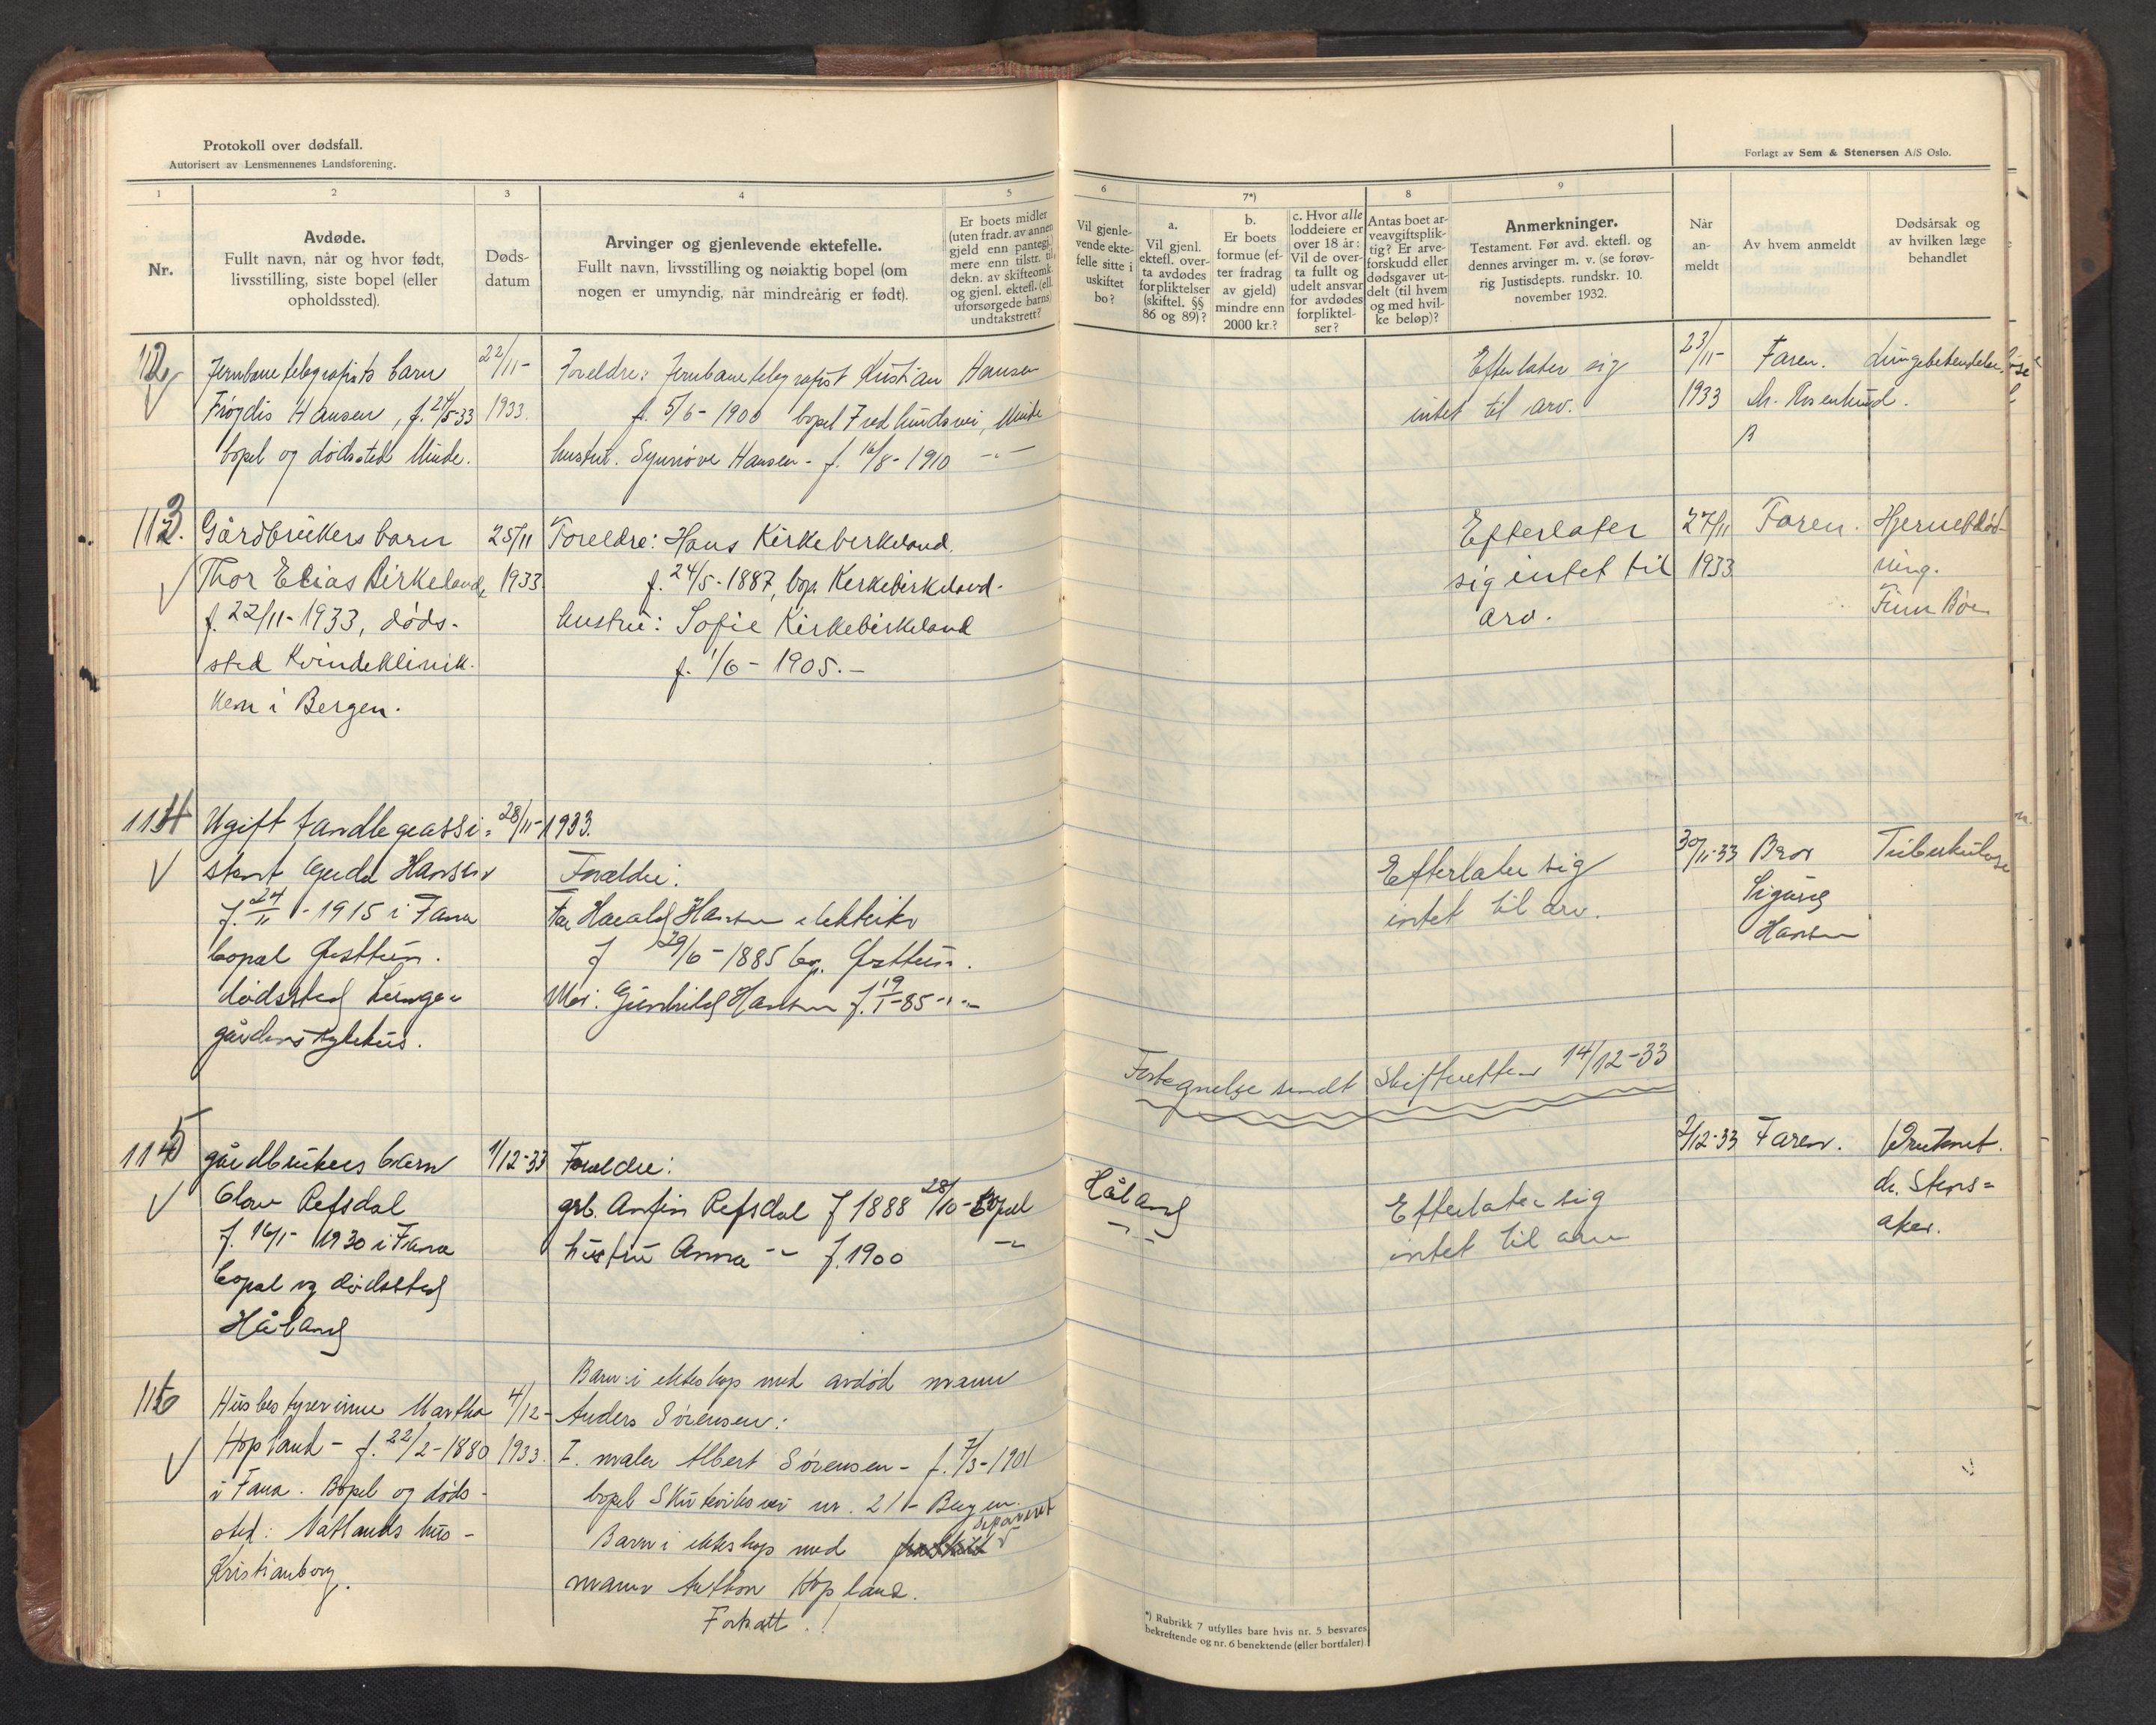 Protokoll over dødsfall.
Autorisert av Lensmennenes Landsforening.
Forlagt av Sem & Stenersen A/S Oslo.
1
Nr.
2
Avdøde.
Fullt navn, når og hvor født,
livsstilling, siste bopel (eller
opholdssted).
3
Døds-
datum
4
Arvinger og gjenlevende ektefelle.
Fullt navn, livsstilling og nøiaktig bopel (om
nogen er umyndig, når mindreårig er født).
5
Er boets midler
(uten fradr. av annen
gjeld enn pantegj.)
mere enn tilstr. til
dekn. av skifteomk.
og gjenl. ektef. (ell.
uforsørgede barns)
undtakstrett?
6
Vil gjenle-
vende ekte-
felle sitte i
uskiftet
bo?
7*)
a.
Vil gjenl.
ektefl. over-
ta avdødes
forpliktelser
(skiftel. §§
86 og 89)?
b.
Er boets
formue (ef-
ter fradrag
av gjeld)
mindre enn
2000 kr.?
c. Hvor alle
loddeiere er
over 18 år:
Vil de over-
ta fullt og
udelt ansvar
for avdødes
forpliktel-
ser?
8
Antas boet ar-
veavgiftsplik-
tig? Er arve-
forskudd eller
dødsgaver ut-
delt (til hvem
og med hvil-
ke beløp)?
9
Anmerkninger.
Testament. Før avd. ektefl. og
dennes arvinger m. v. (se forøv-
rig Justisdepts. rundskr. 10.
november 1932.
Når
an-
meldt
Av hvem anmeldt
Dødsårsak og
av hvilken læge
behandlet
112
Jernbanetelegrafists barn
Frøydis Hansen, f. 24/5-33
bopel og dødssted Minde.
22/11-
1933.
Foreldre: Jernbanetelegrafist Kristian Hansen
f. 5/6-1900 bopel Fredlundsvei, Minde
hustru. Synnøve Hansen - f. 16/8-1910 -"-
Efterlater sig
intet til arv.
23/11-
1933
Faren.
dr. Rosenlund.
Lungebetendelse
113.
Gårdbrukers barn
Thor Elias Birkeland,
f. 22/11-1933, døds-
sted Kvindeklinik-
ken i Bergen.
25/11
1933
Foreldre: Hans Kirkebirkeland.
f. 24/5-1887, bop. Kirkebirkeland.
hustru: Sofie Kirkebirkeland
f. 1/6-1905.-
Efterlater
sig intet til
arv.
27/11
1933
Faren.
Hjerneblød-
ning.
Finn Bøe
114
Ugift tandlegeassi-
stent Gerda Hansen
f. 24/11-1915 i Fana
bopel Nesttun.
dødssted Lunge-
gårdens sykehus.
28/11-1933.
Foreldre:
Far Harald Hansen elektriker
f 29/6-1885 bop. Nesttun.
Mor: Gunhild Hansen f. 19/1-85 -"-
Efterlater sig
intet til arv.
30/11-33
Bror
Sigurd
Hansen
Tuberkulose
Fortegnelse sendt Skifteretten 14/12-33
115
gårdbrukers barn
Olav Refsdal
f. 16/1-1930 i Fana
bopel og dødssted
Håland
1/12-33
Foreldre:
grb. Anfin Refsdal f 1888 28/10- bopel Håland
hustru Anna -"- f. 1900 -"- -"-
Efterlater sig
intet til arv
2/12-33
Faren.
Druknet.
dr. Stens-
aker.
116
Husbestyrerinne Martha
Hopland - f. 22/2-1880
i Fana. Bopel og døds-
sted: Natlands hus-
Kristianborg.
4/12-
1933.
Barn i ekteskap med avdød mann
Anders Sørensen:
I. maler Albert Sørensen - f. 7/3-1901
bopel Skuteviksvei nr. 21 - Bergen.
separert
Barn i ekteskap med fraskilt
mann Anthon Hopland.
Fortsatt.!
*) Rubrikk 7 utfylles bare hvis nr. 5 besvares
bekreftende og nr. 6 benektende (eller bortfaler).